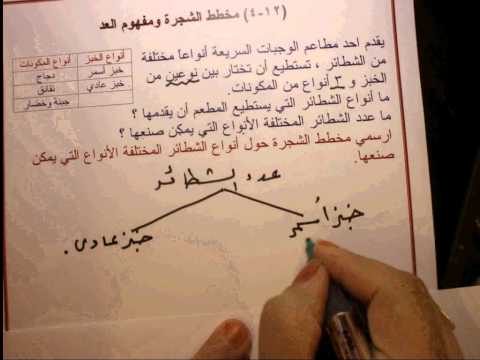 (١٢-٤) مخطط الشجرة ومفهوم العد
يقدم احد مطاعم الوجبات السريعة أنواعاً مختلفة
من الشطائر ، تستطيع أن تختار بين نوعين من
الخبز و ٣ أنواع من المكونات.
ما أنواع الشطائر التي يستطيع المطعم أن يقدمها ؟
ما عدد الشطائر المختلفة الأنواع التي يمكن صنعها ؟
ارسمي مخطط الشجرة حول أنواع الشطائر المختلفة الأنواع التي يمكن
صنعها.
أنواع الخبز أنواع المكونات
خبز أسمر دجاج
خبز عادي نقانق
جبنة وخضار
عدد الشطائر
خبز أسمر
خبز عادي.